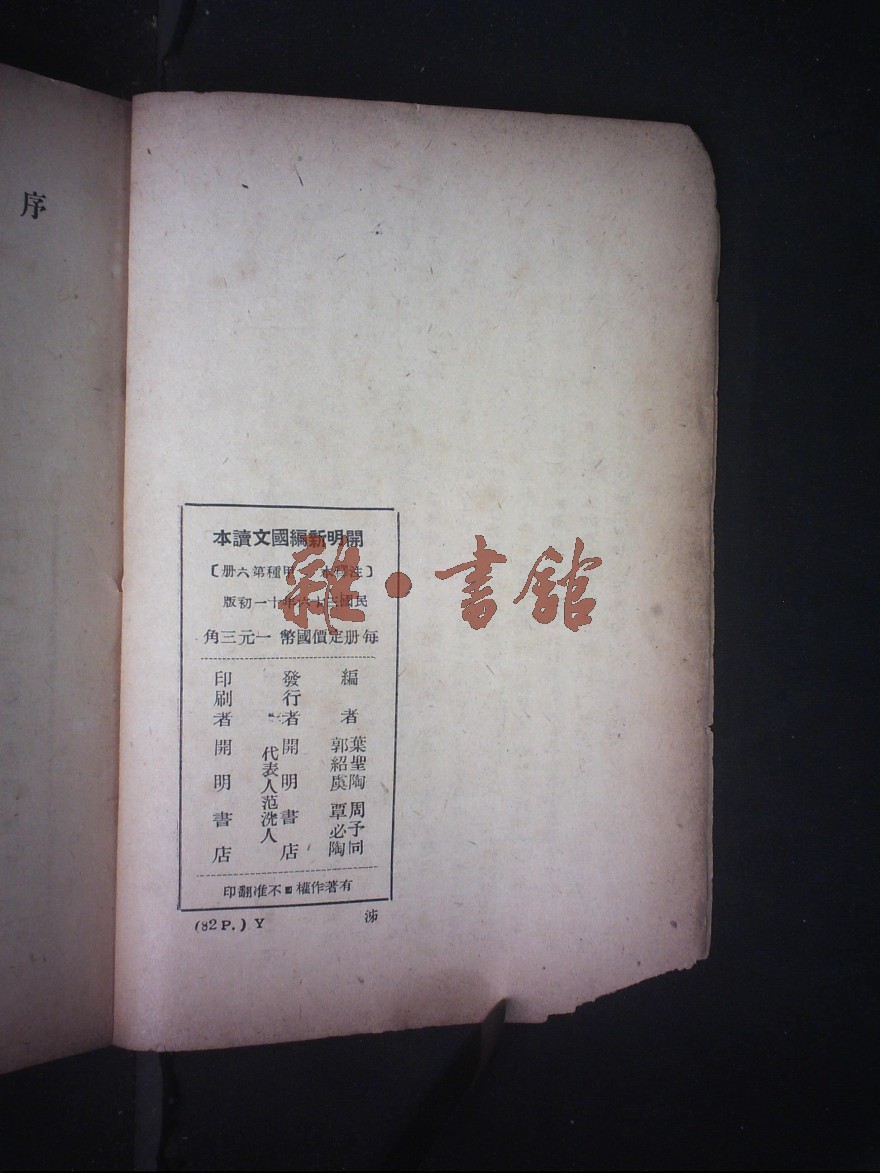 序
開明新編國文讀本
〔注釋本 甲種第六册〕
民國三十六年十一初版
每册定價國幣 一元三角
編者 葉聖陶 周予同 郭紹虞 覃必陶
發行者 開明書店
代表人范洗人
印刷者 開明書店
有著作權 不准翻印
(82 P.) Y
雜·書館